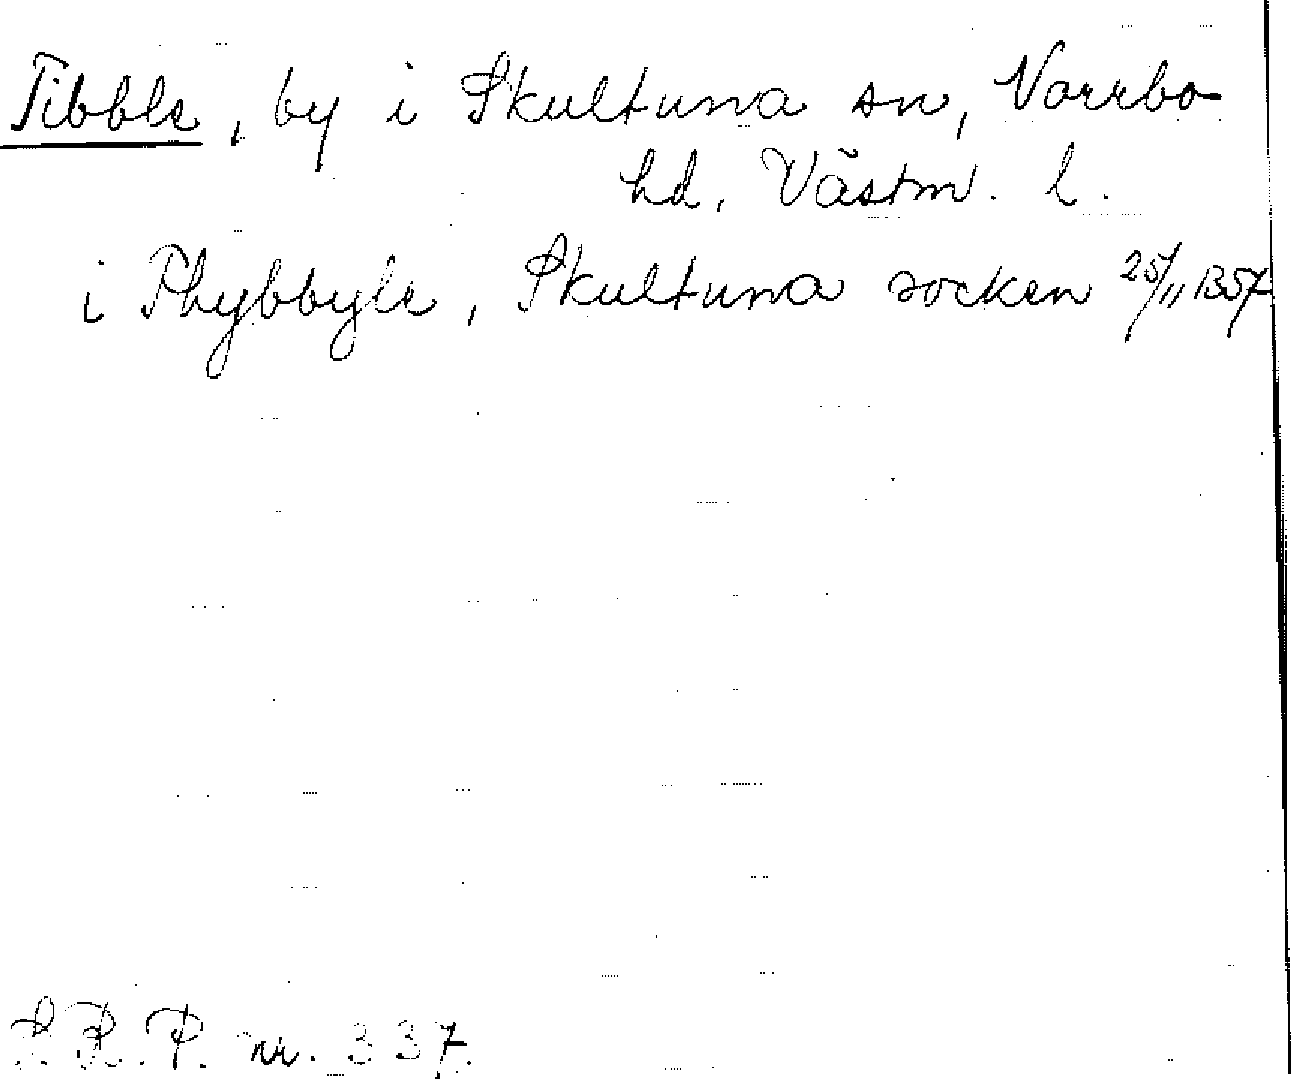 Tibble, by i Skultuna sn, Norrbo
hd, Västm. l.
i Thybbyle, Skultuna socken 25/11 1357
S. R. P. nr. 337.